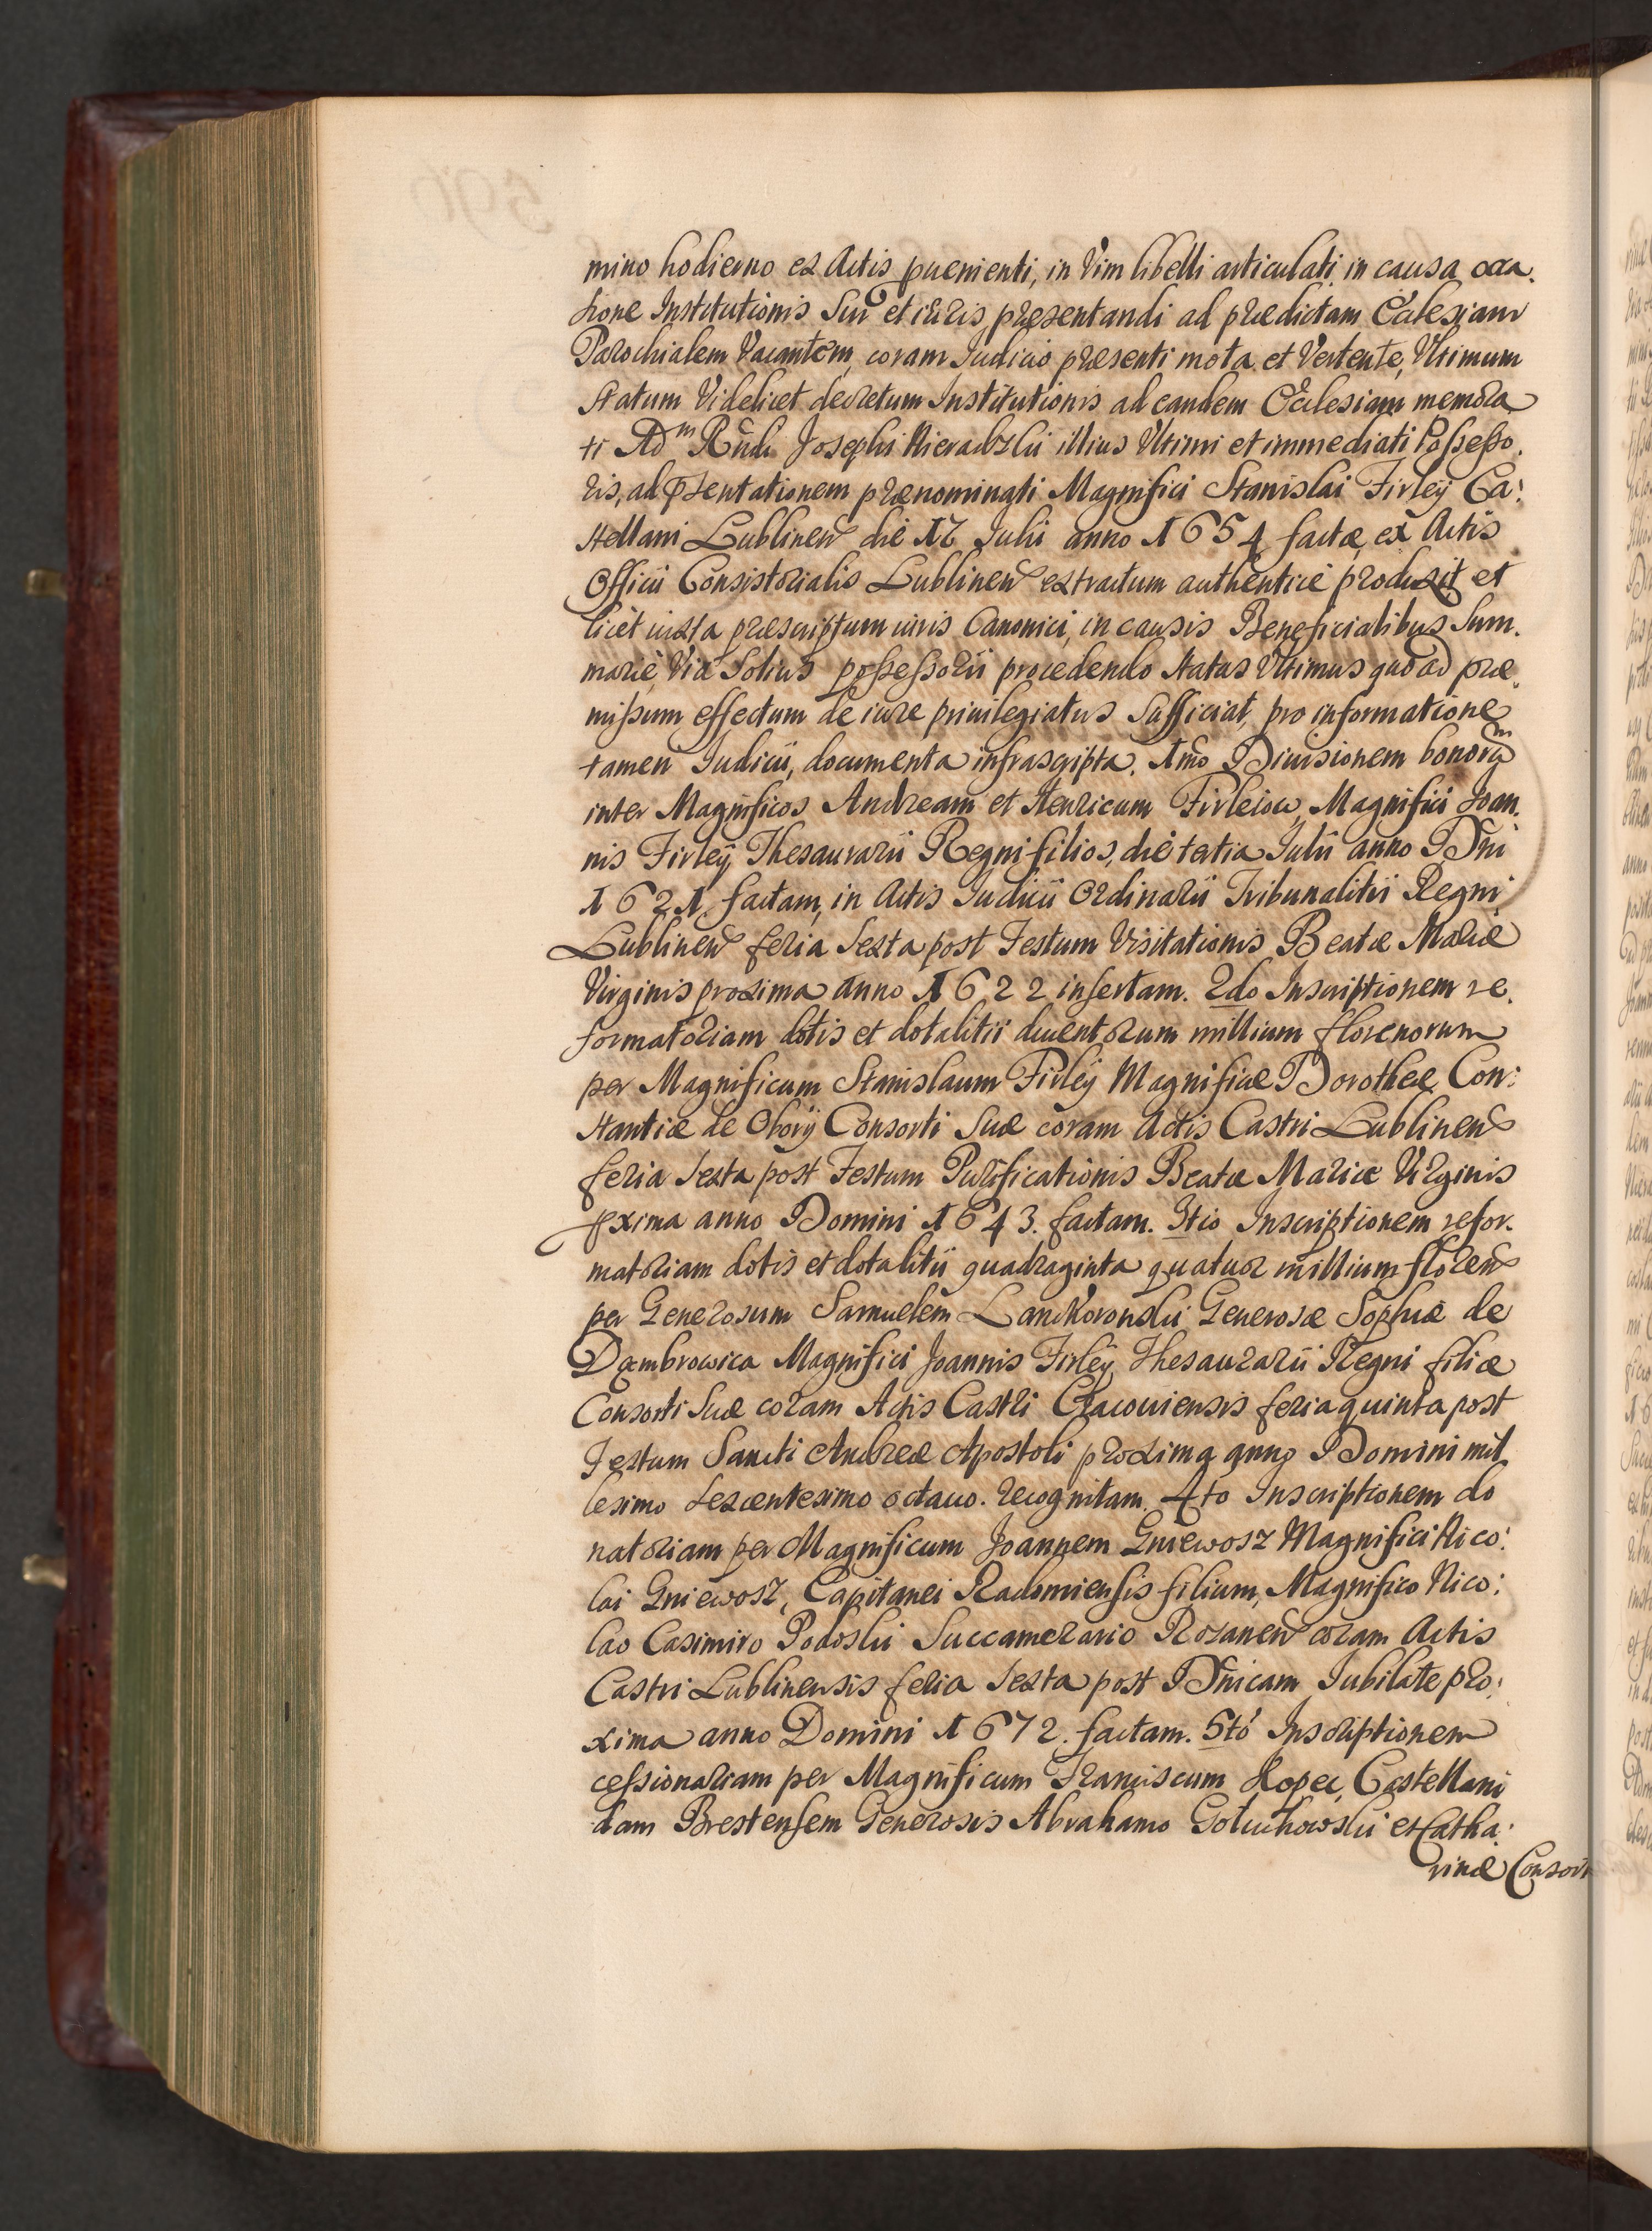 mino hodierno ex Actis puenienti, in Vim libelli articulati in causa occa.
sione Institutionis Sui et iuris præsentandi ad prædictam Ecclesiam
Parochialem Vacantem, coram Iudicio præsenti mota et Vertente, Vltimum
Statum Videlicet decretum Institutionis ad eandem Ecclesiam memora
ti Adm Rndi Josephi Sieradzki illius Vltimi et immediati Possesso.
ris, ad Psentationem prænominati Magnifici Stanislai Firleÿ Ca:
stellani Lublinen die 17 Iulii anno 1654 factæ, ex Actis
Officii Consistorialis Lublinen extractum authenticè produxit et
licet iuxta præscriptum iuris Canonici, in causis Beneficialibus Sum.
mariè, Via Solius possessorii procedendo Status Vltimus quoad præ.
missum effectum de iure priuilegiatus Sufficiat, pro informatione
tamen Iudicii, documenta infrascripta. 1mo Diuisionem bonorum
inter Magnificos Andream et Henricum Firleiow, Magnifici Joan.
nis Firleÿ Thesaurarii Regni filios, die tertia Iulii anno Dni
1621 factam, in Actis Iudicii Ordinarii Tribunalitii Regni
Lublinen feria Sexta post Festum Visitationis Beatæ Mariæ
Virginis proxima anno 1622 insertam. 2do Inscriptionem re.
formatoriam dotis et dotalitii ducentorum millium florenorum
per Magnificum Stanislaum Firleÿ Magnificæ Dorotheæ Con:
stantiæ de Oborÿ Consorti Suæ coram Actis Castri Lublinen
feria Sexta post Festum Purificationis Beatæ Mariæ Virginis
pxima anno Domini 1643. factam. 3tio Inscriptionem refor.
matoriam dotis et dotalitii quadraginta quatuor millium floren
per Generosum Samuelem Lanckoronski Generosæ Sophiæ de
Dąmbrowica Magnifici Joannis Firleÿ Thesaurarii Regni filiæ
Consorti Suæ coram Actis Castri Cracouiensis feria quinta post
Festum Sancti Andreæ Apostoli proxima anno Domini mil
lesimo Sexcentesimo octauo. recognitam. 4to Inscriptionem do
natoriam per Magnificum Joannem Gniewosz Magnifici Nico:
lai Gniewosz, Capitanei Radomiensis filium, Magnifico Nico:
lao Casimiro Podoski Succamerario Rozanen coram Actis
Castri Lublinensis feria Sexta post Dnicam Iubilate pro:
xima anno Domini 1672. factam. 5tò Inscriptionem
cessionariam per Magnificum Franciscum Kopec, Castellani
dam Brestensem Generosis Abrahamo Gołuchowski et Catha:
rinæ Consorti